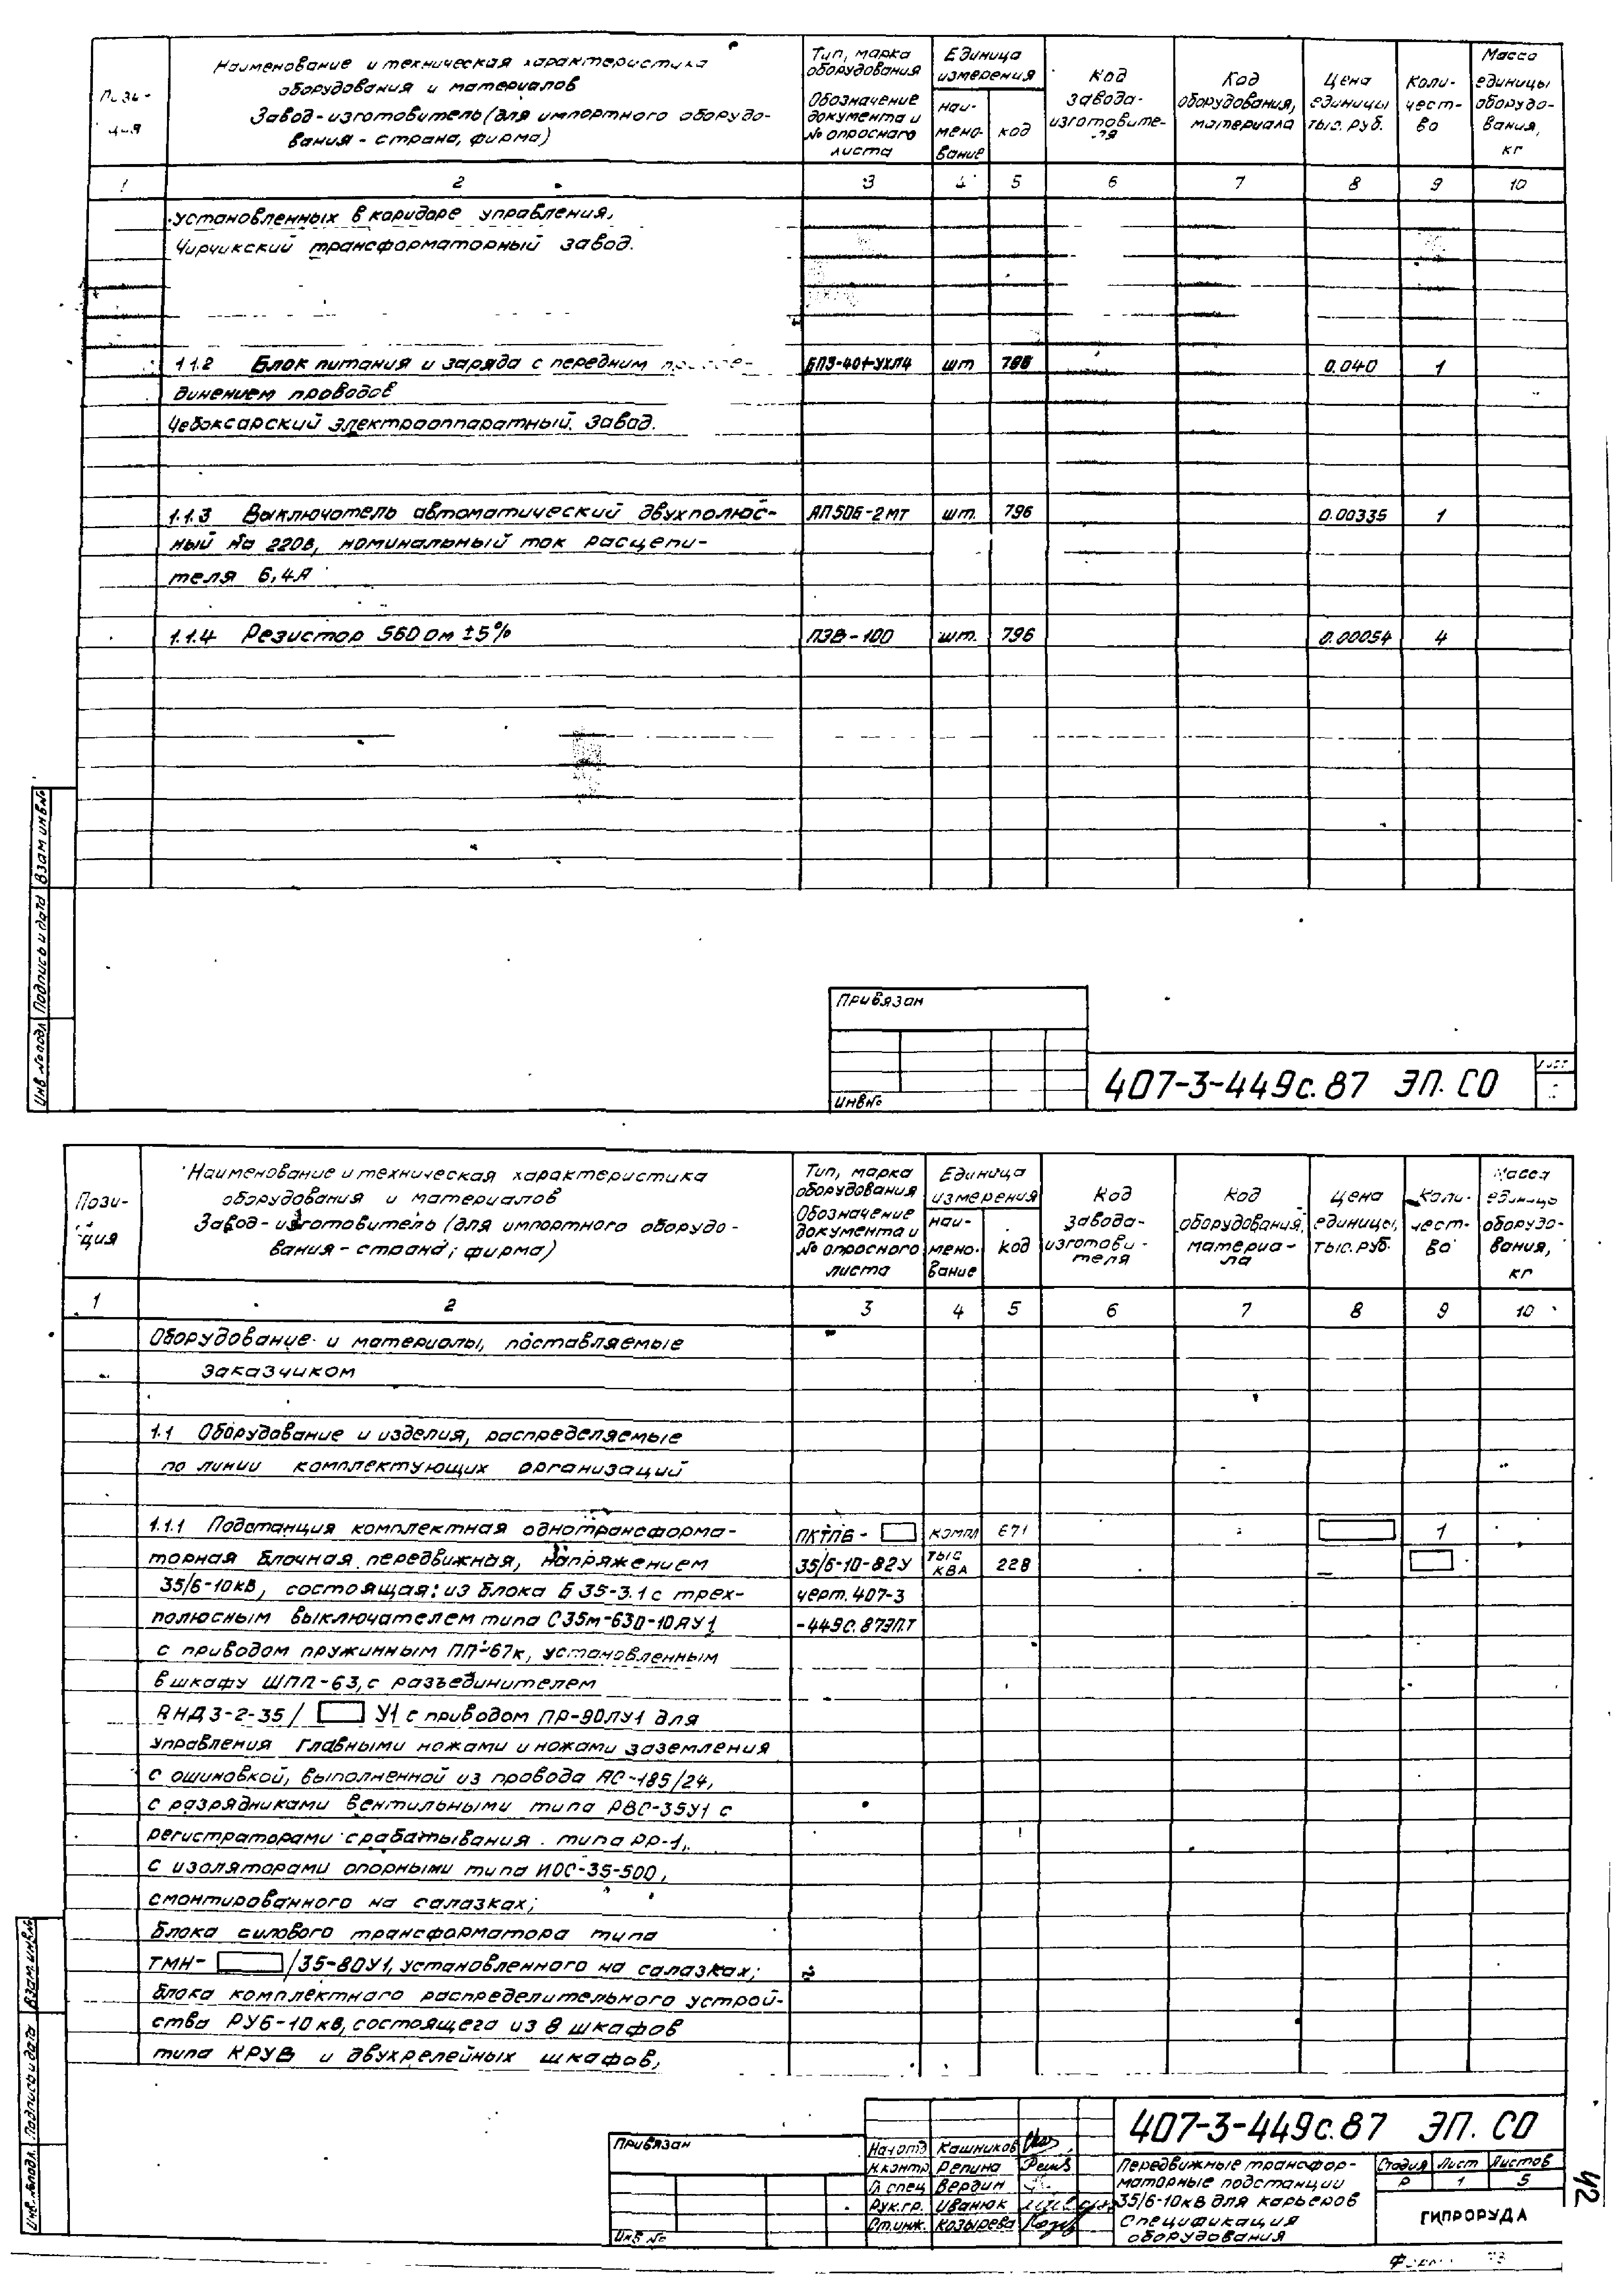 Наименование и техническая характеристика
оборудования и материалов
Завод-изготовитель (для импортного оборудо-
вания - страна, фирма)
Тип, марка
оборудования
Обозначение
документа и
№ опросного
листа
Единица
измерения
наи-
мено-
вание
код
Код
завода-
изготовите-
ля
Код
оборудования,
материала
Цена
единицы
тыс. руб.
Коли-
чест-
во
Масса
единицы
оборудо-
вания,
кг
1 2 3 4 5 6 7 8 9 10
установленных в коридоре управления.
Чирчикский трансформаторный завод.
1.1.2 Блок питания и заряда с передним БПЗ-401-УХЛ4 шт 796 0.040 1
динением проводов
Чебоксарский электроаппаратный завод.
1.1.3 Выключатель автоматический двухполюс- АП50Б-2МТ шт. 796 0.00335 1
ный на 220в, номинальный ток расцепи-
теля 6,4А
1.1.4 Резистор 560 Ом ±5% ПЭВ-100 шт. 796 0.00054 4
Взам инв№
Подпись и дата
Инв № подл
Привязан
Инв№
407-3-449с.87 ЭП. СО
Лист
Пози-
ция
Наименование и техническая характеристика
оборудования и материалов
Завод-изготовитель (для импортного оборудо-
вания - страна, фирма)
Тип, марка
оборудования
Обозначение
документа и
№ опросного
листа
Единица
измерения
наи-
мено-
вание
код
Код
завода-
изготови-
теля
Код
оборудования,
материа-
ла
Цена
единицы,
тыс. руб.
Коли-
чест-
во
Масса
единицы
оборудо-
вания,
кг
1 2 3 4 5 6 7 8 9 10
Оборудование и материалы, поставляемые
заказчиком
1.1 Оборудование и изделия, распределяемые
по линии комплектующих организаций
1.1.1 Подстанция комплектная однотрансформа- ПКТПБ- компл 671 1
торная блочная передвижная, напряжением 35/6-10-82У тыс КВА 228 –
35/6-10кВ, состоящая: из блока Б 35-3.1 с трех- черт. 407-3
полюсным выключателем типа С35м-630-10АУ1 -449с.87ЭП.Т
с приводом пружинным ПП-67к, установленным
в шкафу ШПП-63, с разъединителем
РНДЗ-2-35/ У1 с приводом ПР-90ЛУ1 для
управления главными ножами и ножами заземления
с ошиновкой, выполненной из провода АС-185/24,
с разрядниками вентильными типа РВС-35У1 с
регистраторами срабатывания типа РР-1,
с изоляторами опорными типа ИОС-35-500,
смонтированного на салазках;
блока силового трансформатора типа
ТМН- /35-80У1, установленного на салазках;
блока комплектного распределительного устрой-
ства РУ6-10кВ, состоящего из 8 шкафов
типа КРУВ и двухрелейных шкафов,
Взам. инв.№
Подпись и дата
Инв. № подл.
Привязан
Инв №
Нач отд Кашников
Н.контр Репина
Гл спец Вердин
Рук.гр. Иванюк
Ст.инж. Козырева
407-3-449с.87 ЭП. СО
Передвижные трансфор-
маторные подстанции
35/6-10кВ для карьеров
Спецификация
оборудования
Стадия Лист Листов
Р 1 5
ГИПРОРУДА
42